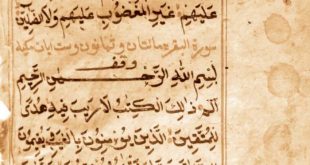 عَلَيْهِمْ غَيْرِ الْمَغْضُوبِ عَلَيْهِمْ وَلَا الضَّالِّينَ
سورة البقرة مائتان وثمانون وست ايات مكية
وقف
بِسْمِ اللهِ الرَّحْمٰنِ الرَّحِيمِ
الم ذٰلِكَ الْكِتٰبُ لَا رَيْبَ فِيهِ هُدًى
لِلْمُتَّقِينَ الَّذِينَ يُؤْمِنُونَ بِالْغَيْبِ وَيُقِيمُونَ